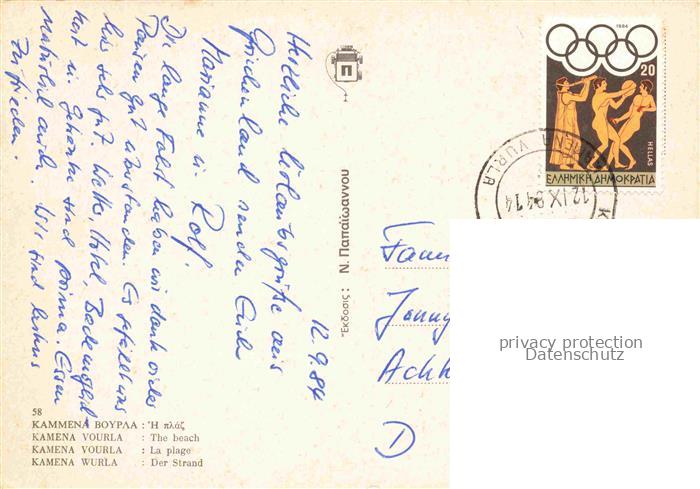 12.9.84
Herzliche Urlaubsgrüße aus
Griechenland senden Euch
Marianne u. Rolf.
Die lange Fahrt haben wir dank vieler
Pausen gut überstanden. Es gefällt uns
hier sehr gut. Wetter, Hotel, Bademöglich-
keit u. Getränke sind prima. Essen
natürlich auch. Wir sind bestens
zufrieden.
Π
Ἔκδοσις: Ν. Παπαϊωάννου
1984
20
HELLAS
ΕΛΛΗΝΙΚΗ ΔΗΜΟΚΡΑΤΙΑ
KAMENA VURLA
12.IX.84 14
Fam
Jenny
Achk
D
privacy protection
Datenschutz
58
ΚΑΜΜΕΝΑ ΒΟΥΡΛΑ : Ἡ πλάζ
KAMENA VOURLA : The beach
KAMENA VOURLA : La plage
KAMENA WURLA : Der Strand